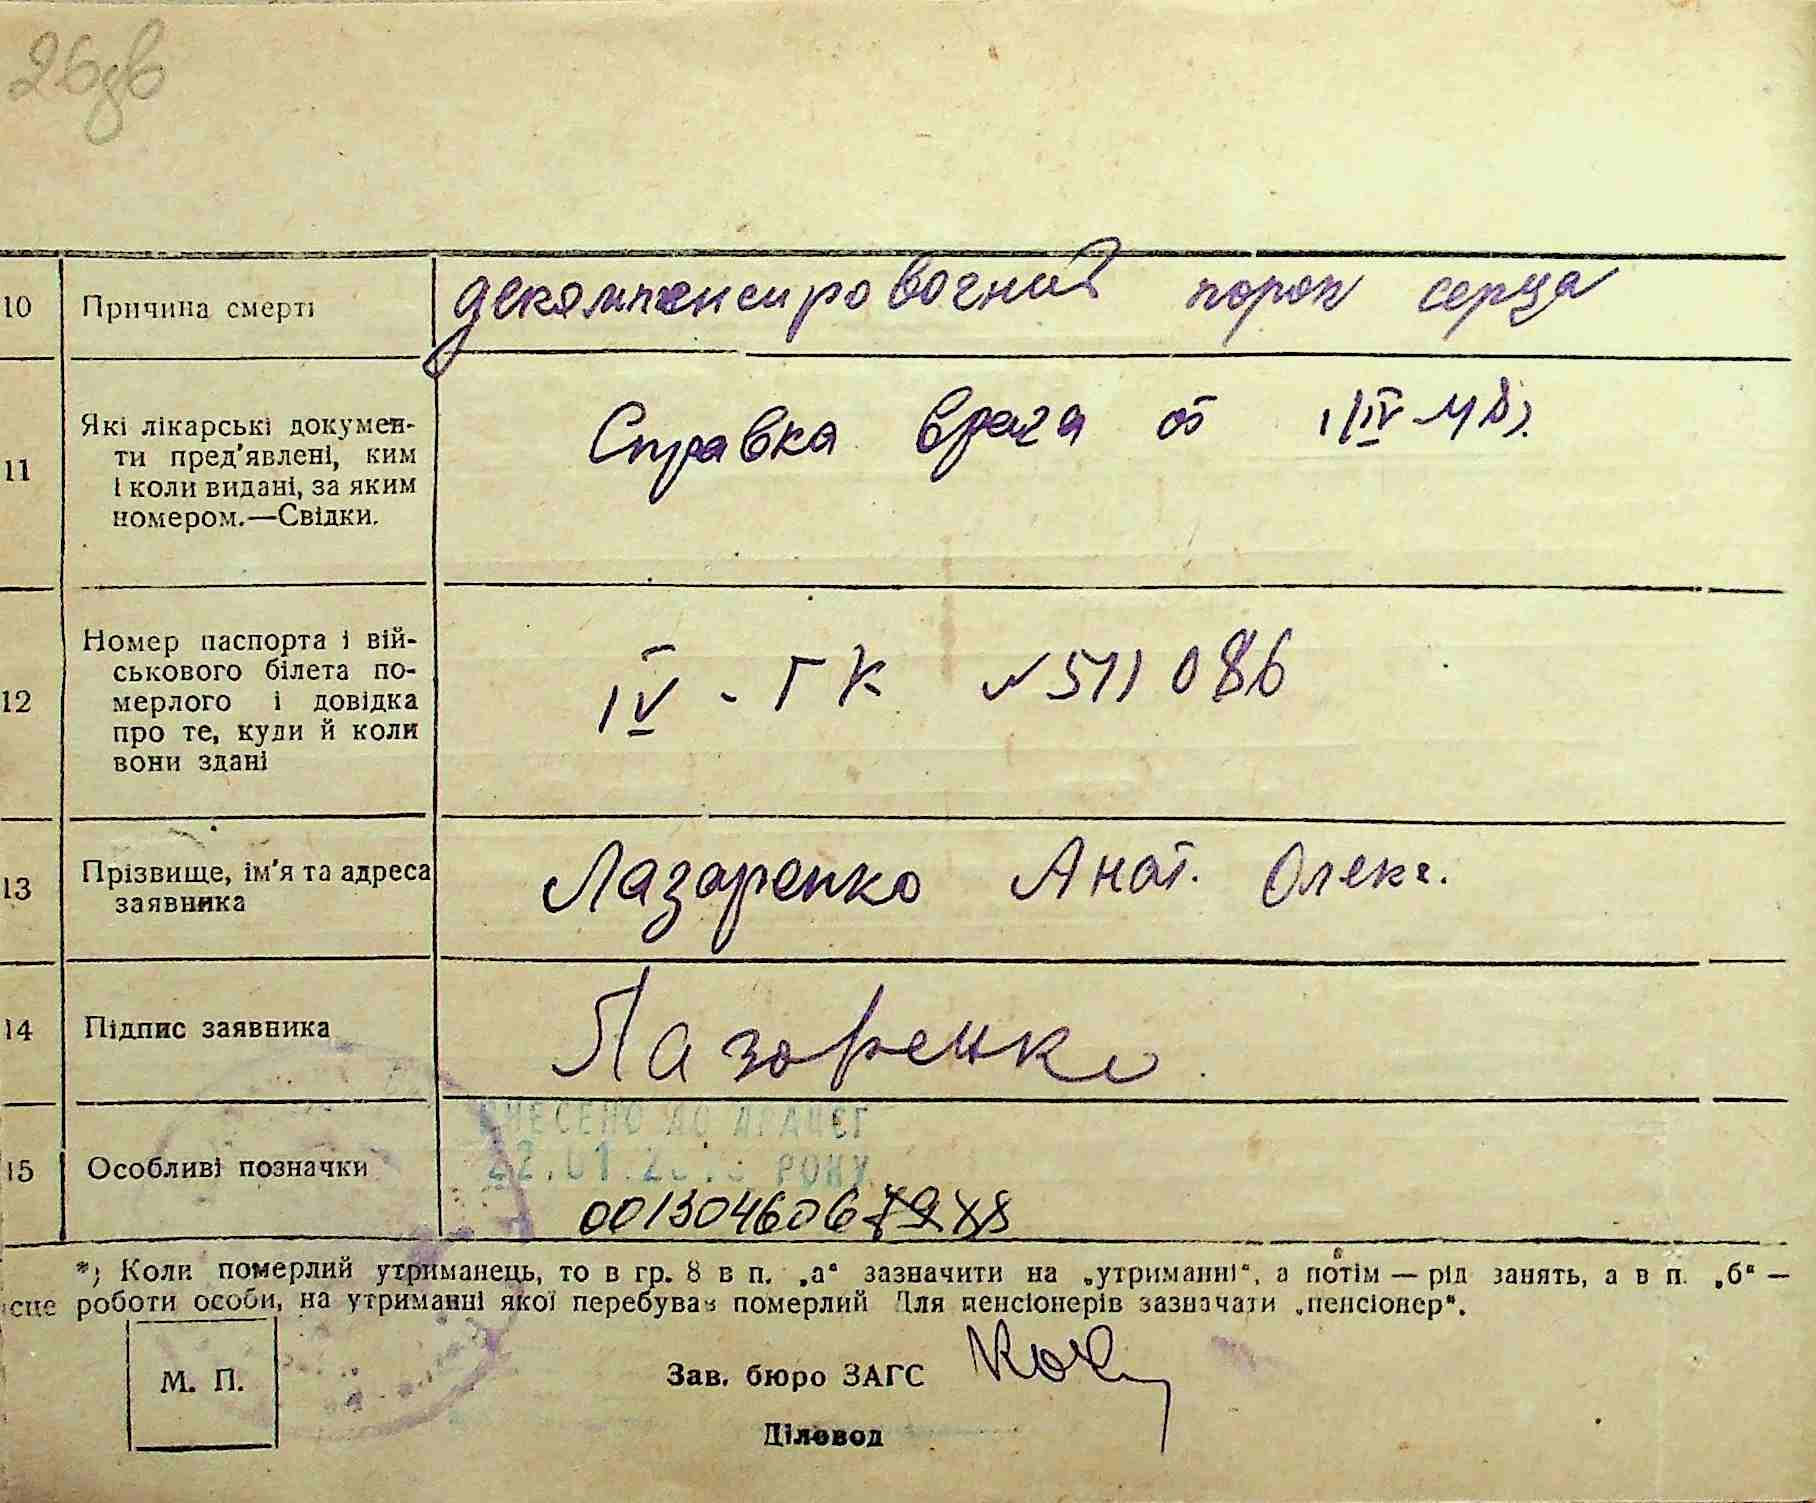 26зв
10 Причина смерті декомпенсировочний порок серца
11 Які лікарські докумен-
ти пред'явлені, ким
і коли видані, за яким
номером.—Свідки.
Справка врача от
12 Номер паспорта і вій-
ськового білета по-
мерлого і довідка
про те, куди й коли
вони здані
IV - ГК № 511086
13 Прізвище, ім'я та адреса
заявника
Лазаренко Анат. Олекс.
14 Підпис заявника Лазоренко
ВНЕСЕНО ДО ДРАЦСГ
22.01. РОКУ
15 Особливі позначки
001304606
*) Коли померлий утриманець, то в гр. 8 в п. „а“ зазначити на „утриманні“, а потім — рід занять, а в п. „б“ —
ісце роботи особи, на утриманні якої перебував померлий Для пенсіонерів зазначати „пенсіонер“.
М. П.
Зав. бюро ЗАГС
Діловод